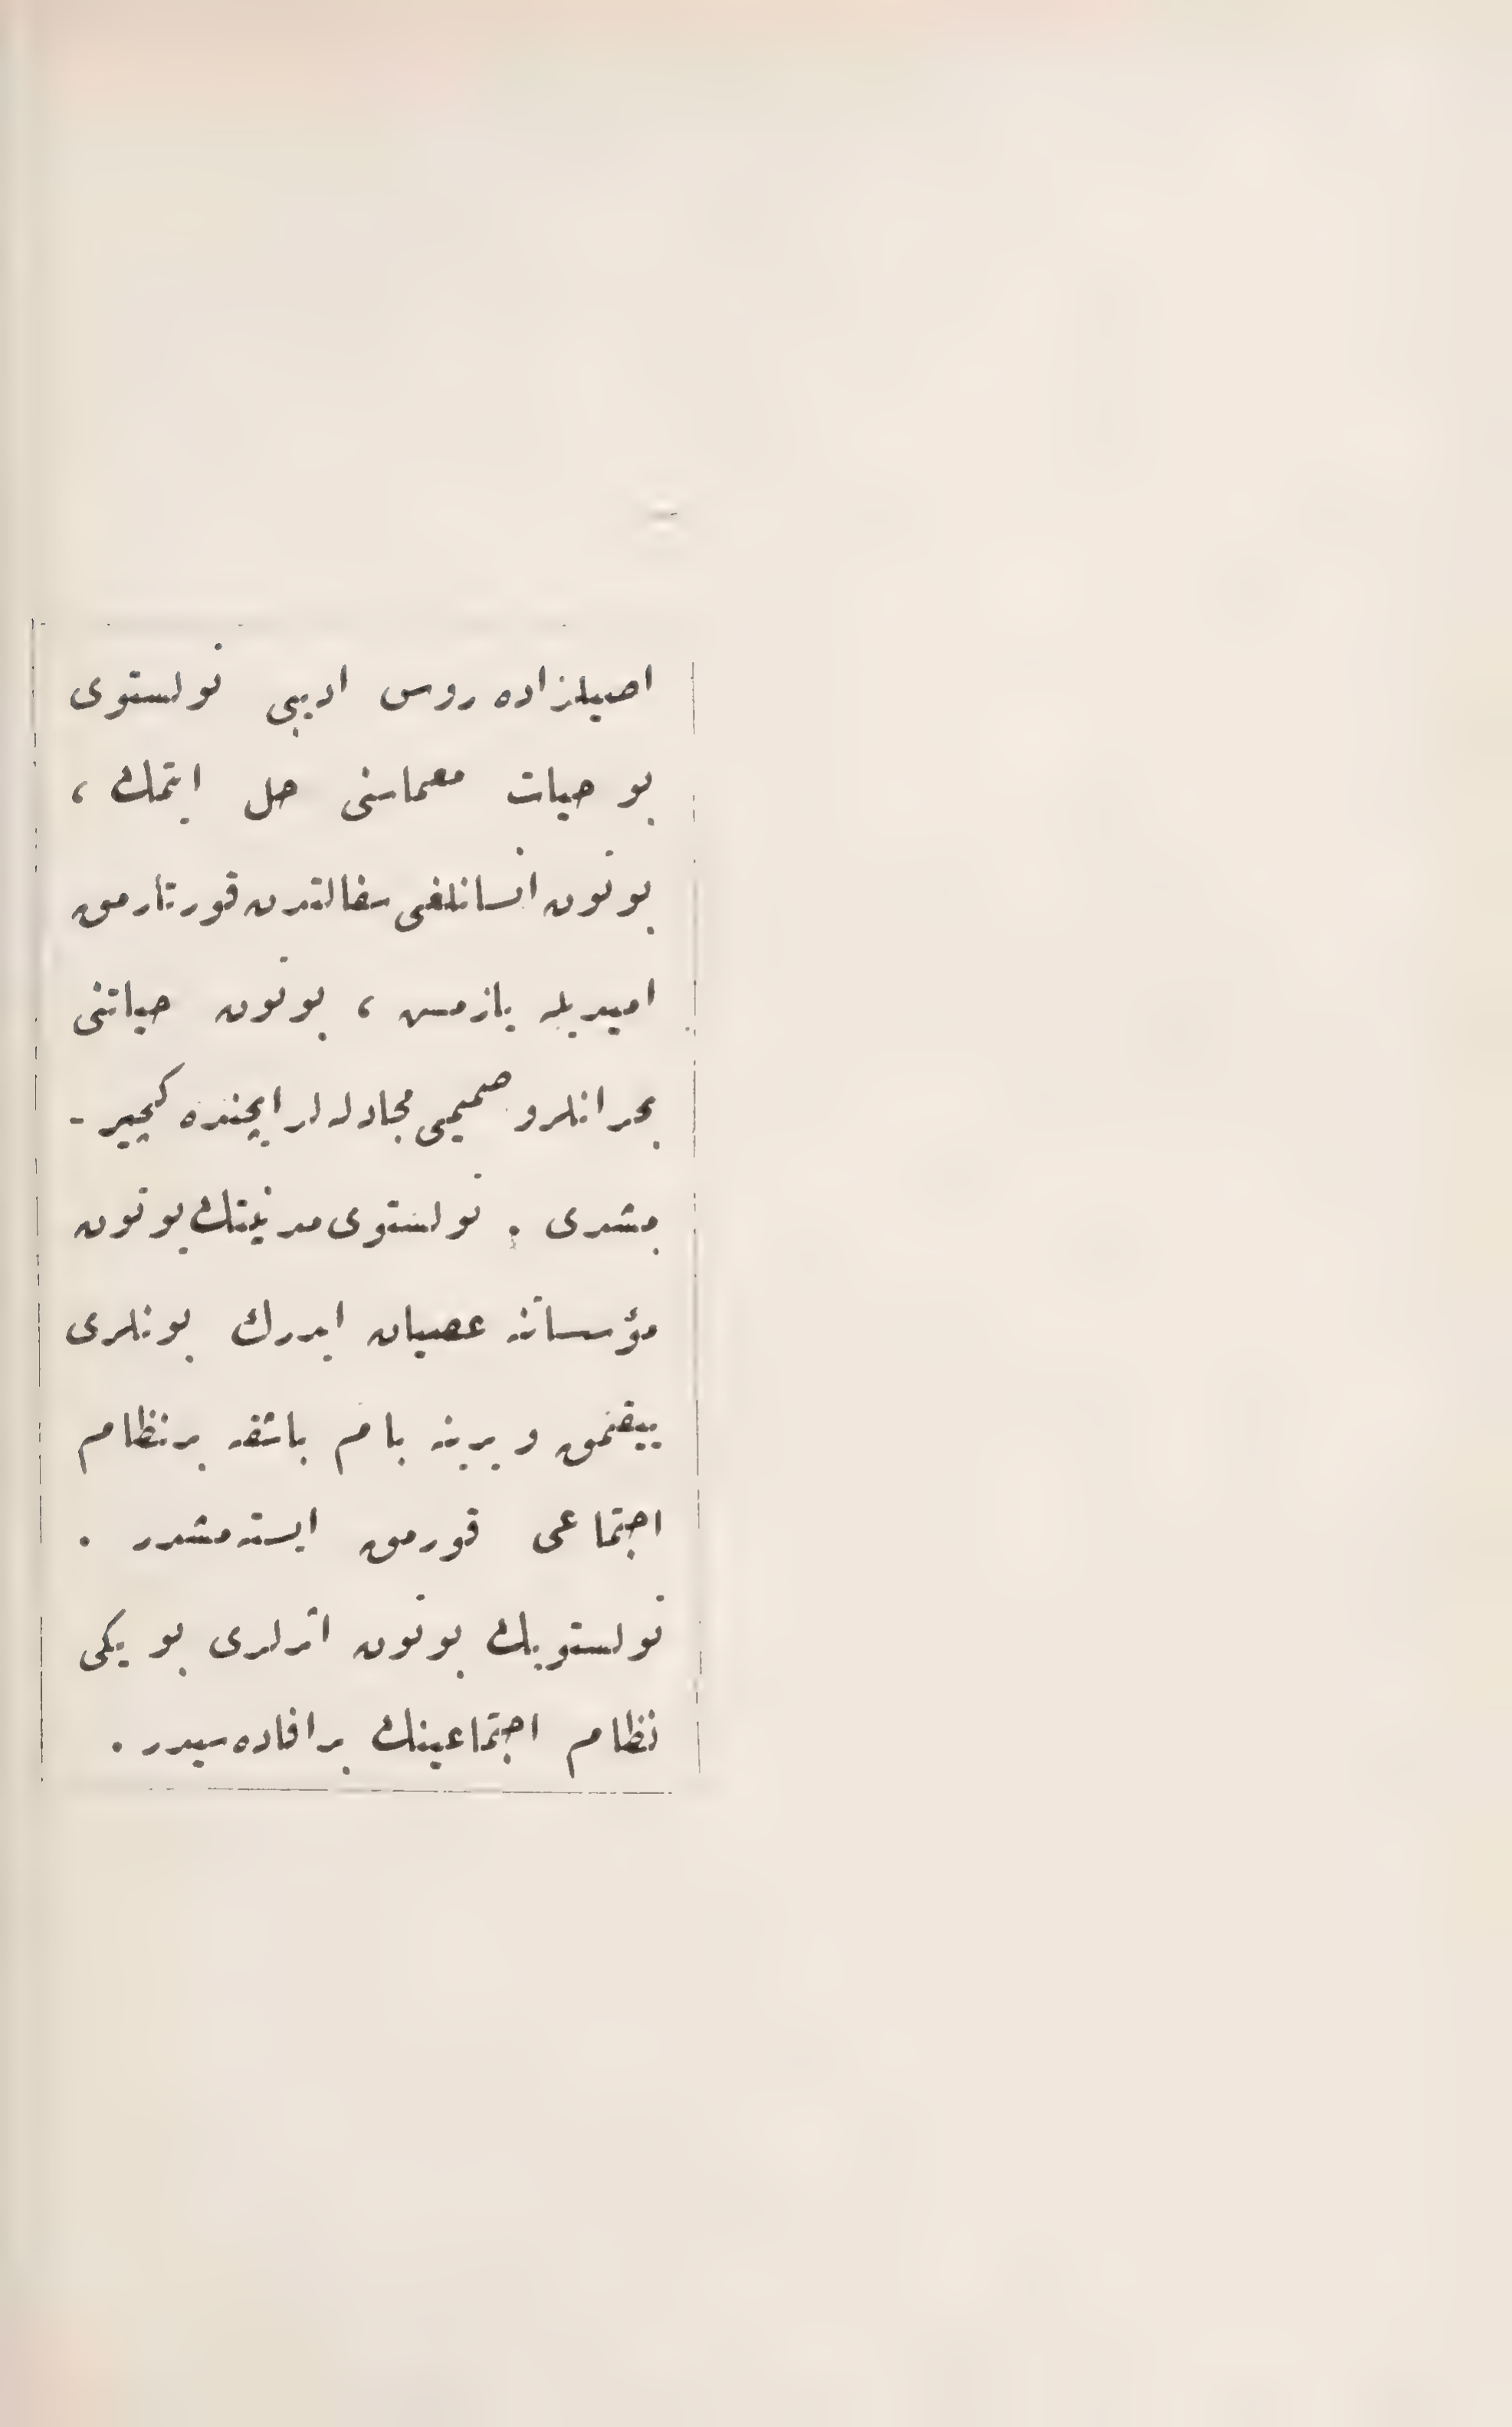 اصیلزاده روس ادیبی تولستوی
بو حیات معماسنی حل ایتمك ،
بوتون انسانلغی سفالتدن قورتارمق
امیدیله یازمس ، بوتون حیاتنی
بحرانلرو صمیمی مجادله لر ایچنده کچیر -
مشدی . تولستوی مدنیتك بوتون
مؤسساتنه عصیان ایدرك بونلری
ییقمق و یرینه بام باشقه برنظام
اجتماعی قورمق ایسته مشدر .
تولستویك بوتون اثرلری بو یکی
نظام اجتماعینك برافاده سیدر .